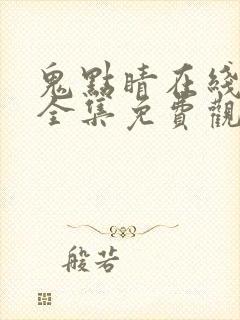 鬼點睛在綫
全集免費觀
般若